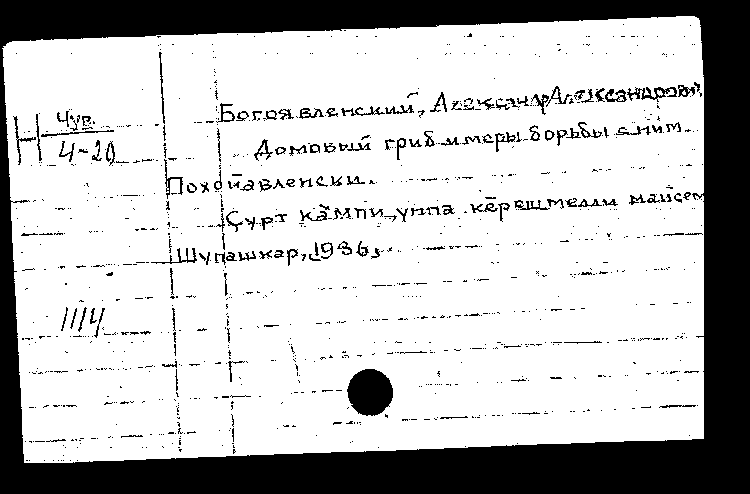 Н Чув.
4-20
Богоявленский, Александр Александрович.
Домовый гриб и меры борьбы с ним.
Похойавленски.
Ҫурт кӑмпи, унпа кӗрешмелли майсем
Шупашкар, 1936,
1114